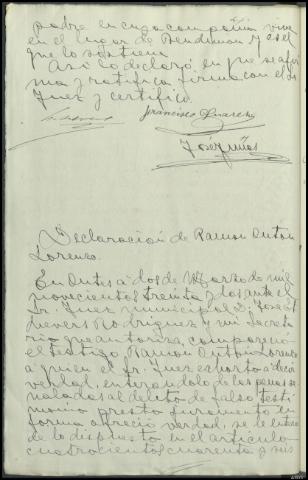 padre en cuya compañía vive
en el lugar de Bendimon y es el
que lo sostiene.
Así lo declaró en que se afir
ma y ratifica firma con el Sr
Juez y certifico.
Francisco Suarez
José Niños
Declaración de Ramon Anton
Lorenzo.
En Outes a dos de Marzo de mil
novecientos treinta y dos ante el
Sr. Juez municipal D. José
Rodriguez y mi Secreta
rio que autoriza, compareció
el testigo Ramon Anton Lorenzo
a quien el Sr. Juez exhortó a decir
verdad, enterandolo de las penas se
ñaladas al delito de falso testi
monio prestó juramento en
forma ofreció verdad, se le enteró
de lo dispuesto en el artículo
cuatrocientos cuarenta y seis